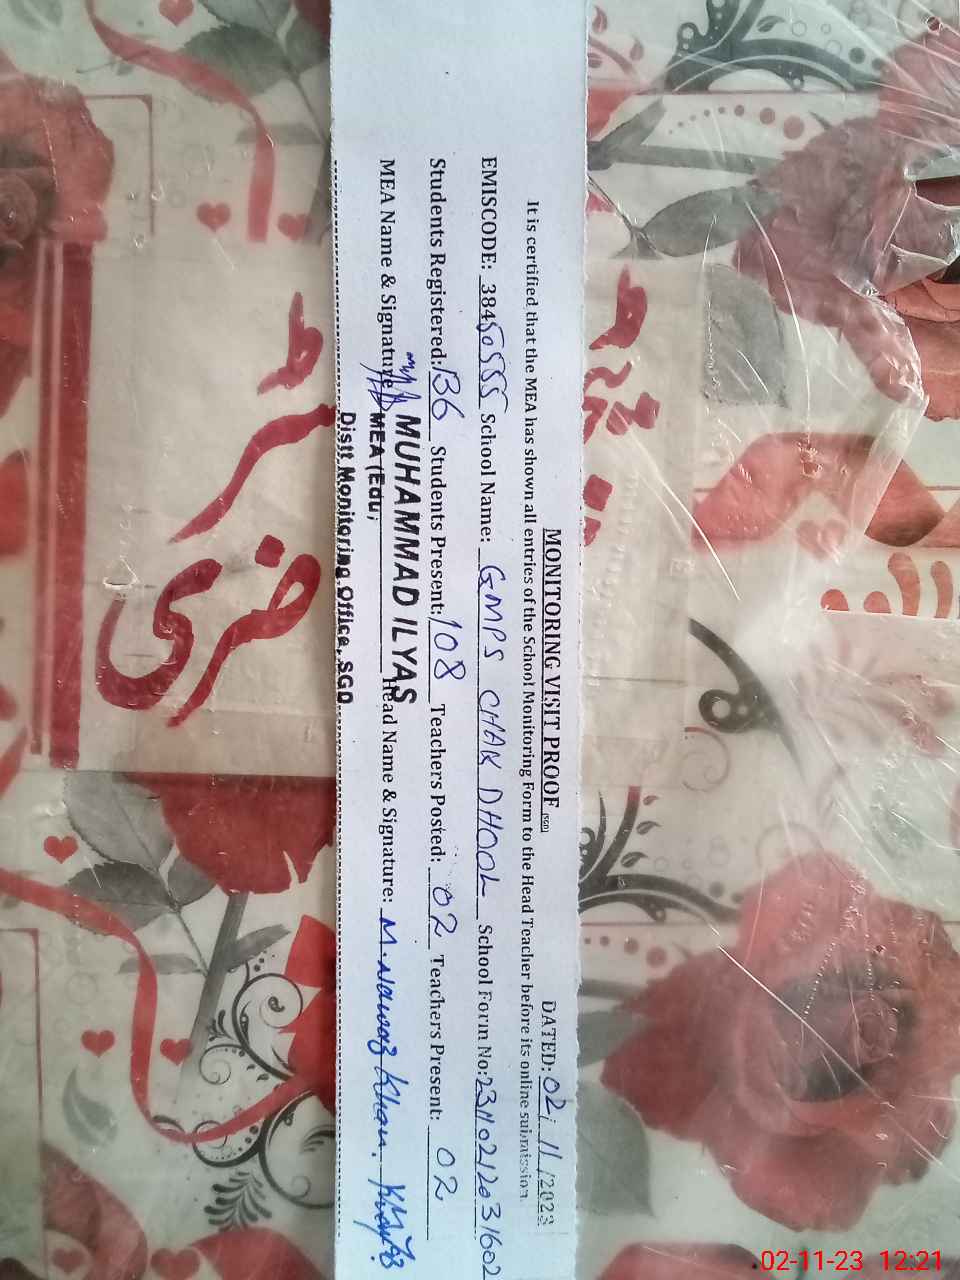 MONITORING VISIT PROOF (SGD) DATED: 02/11/2023
It is certified that the MEA has shown all entries of the School Monitoring Form to the Head Teacher before its online submission.
EMISCODE: 38450555 School Name: GMPS CHAK DHOOL School Form No: 23110212031602
Students Registered: 136 Students Present: 108 Teachers Posted: 02 Teachers Present: 02
MEA Name & Signature Head Name & Signature: M. Nawaz Khan.
MUHAMMAD ILYAS
MEA (Edu)
Distt Monitoring Office, SGD
02-11-23 12:21